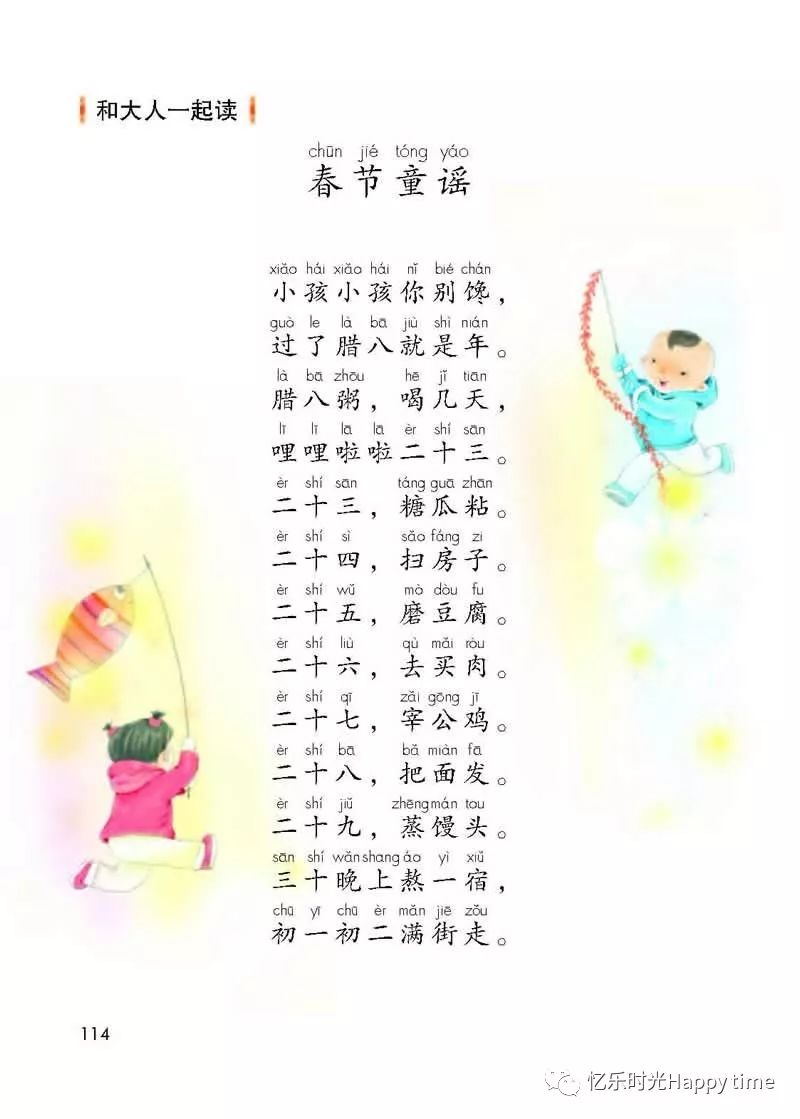 和大人一起读
chūn jié tóng yáo
春节童谣
xiǎo hái xiǎo hái nǐ bié chán
小孩小孩你别馋，
guò le là bā jiù shì nián
过了腊八就是年。
là bā zhōu hē jǐ tiān
腊八粥，喝几天，
lī lī lā lā èr shí sān
哩哩啦啦二十三。
èr shí sān táng guā zhān
二十三，糖瓜粘。
èr shí sì sǎo fáng zi
二十四，扫房子。
èr shí wǔ mò dòu fu
二十五，磨豆腐。
èr shí liù qù mǎi ròu
二十六，去买肉。
èr shí qī zǎi gōng jī
二十七，宰公鸡。
èr shí bā bǎ miàn fā
二十八，把面发。
èr shí jiǔ zhēng mán tou
二十九，蒸馒头。
sān shí wǎn shang áo yì xiǔ
三十晚上熬一宿，
chū yī chū èr mǎn jiē zǒu
初一初二满街走。
114
忆乐时光Happy time